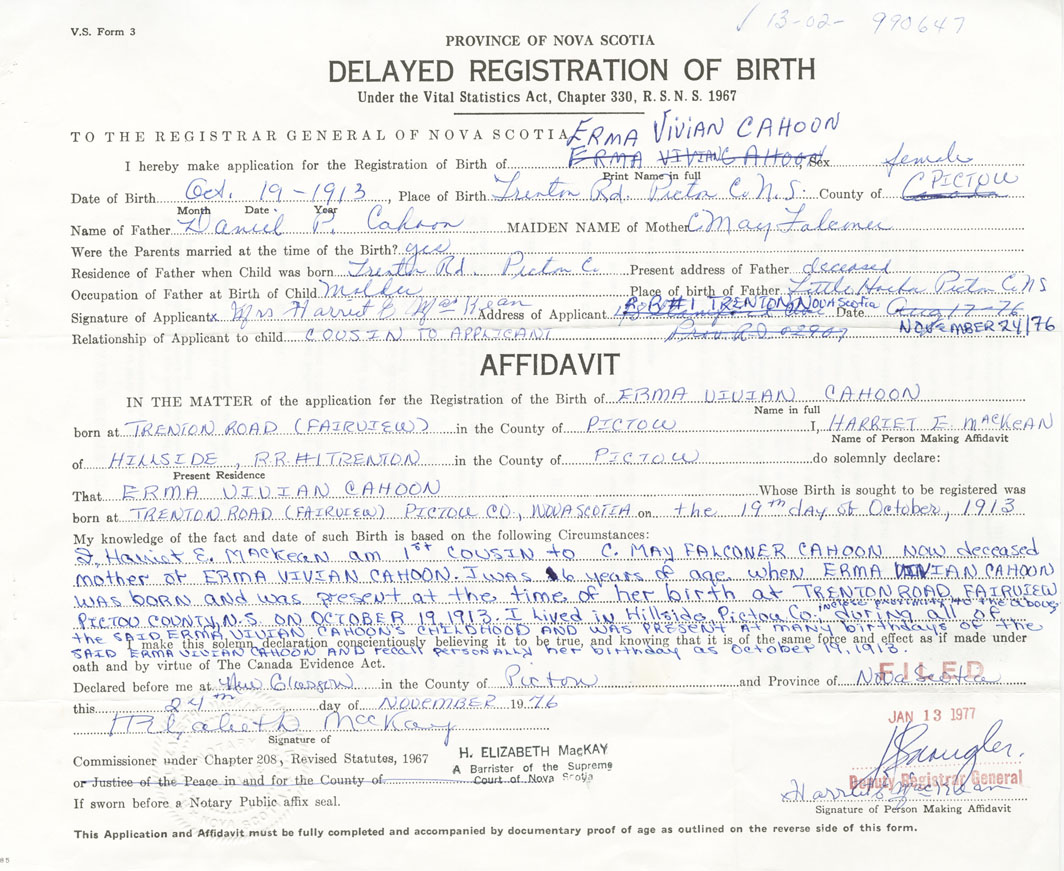 13-02- 990647
V.S. Form 3
PROVINCE OF NOVA SCOTIA
DELAYED REGISTRATION OF BIRTH
Under the Vital Statistics Act, Chapter 330, R.S.N.S. 1967
TO THE REGISTRAR GENERAL OF NOVA SCOTIA ERMA VIVIAN CAHOON
I hereby make application for the Registration of Birth of ERMA VIVIAN CAHOON Sex female
Print Name in full
Date of Birth Oct. 19-1913, Place of Birth Trenton Rd. Pictou Co. N.S. County of PICTOU
Month Date Year
Name of Father Daniel P. Cahoon MAIDEN NAME of Mother C May Falconer
Were the Parents married at the time of the Birth? yes
Residence of Father when Child was born Trenton Rd. Pictou C. Present address of Father deceased
Occupation of Father at Birth of Child Molder Place of birth of Father Little Pictou C. NS
Signature of Applicant x Mrs Harriet E MacKean Address of Applicant R.R.#1 TRENTON, NOVA SCOTIA Date Aug 17-76
Relationship of Applicant to child COUSIN TO APPLICANT NOVEMBER 24/76
AFFIDAVIT
IN THE MATTER of the application for the Registration of the Birth of ERMA VIVIAN CAHOON
Name in full
born at TRENTON ROAD (FAIRVIEW) in the County of PICTOU I, HARRIET E. MacKEAN
Name of Person Making Affidavit
of HILLSIDE, R.R.#1 TRENTON in the County of PICTOU do solemnly declare:
Present Residence
That ERMA VIVIAN CAHOON Whose Birth is sought to be registered was
born at TRENTON ROAD (FAIRVIEW) PICTOU CO., NOVA SCOTIA on the 19th day of October, 1913
My knowledge of the fact and date of such Birth is based on the following Circumstances:
I, Harriet E. MACKEAN am 1st COUSIN to C. MAY FALCONER CAHOON NOW deceased
mother of ERMA VIVIAN CAHOON. I was 16 years of age when ERMA VIVIAN CAHOON
WAS BORN and was present at the time of her birth at TRENTON ROAD, FAIRVIEW
PICTOU COUNTY, N.S. ON OCTOBER 19, 1913. I lived in Hillside, Pictou Co. in close proximity to the above during all of
the SAID ERMA VIVIAN CAHOON'S CHILDHOOD AND WAS PRESENT AT MANY birthdays of the
SAID ERMA VIVIAN CAHOON AND recall personally her birthday as October 19, 1913.
I make this solemn declaration conscientiously believing it to be true, and knowing that it is of the same force and effect as if made under
oath and by virtue of The Canada Evidence Act.
FILED
Declared before me at New Glasgow in the County of Pictou and Province of Nova Scotia
this 24th day of NOVEMBER 1976
JAN 13 1977
H Elizabeth MacKay
Signature of
Commissioner under Chapter 208, Revised Statutes, 1967
or Justice of the Peace in and for the County of
If sworn before a Notary Public affix seal.
H. ELIZABETH MacKAY
A Barrister of the Supreme
Court of Nova Scotia
Deputy Registrar General
x Harriet E MacKean
Signature of Person Making Affidavit
This Application and Affidavit must be fully completed and accompanied by documentary proof of age as outlined on the reverse side of this form.
85